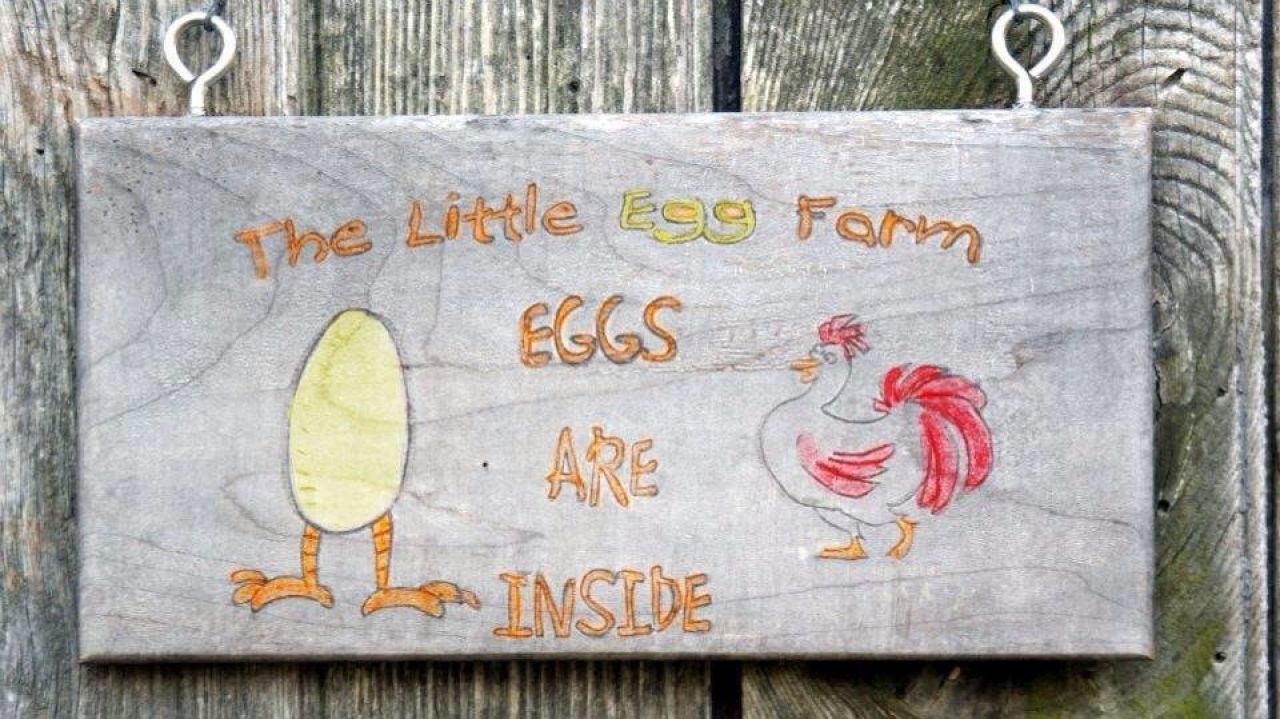 The Little Egg Farm
EGGS
ARE
INSIDE